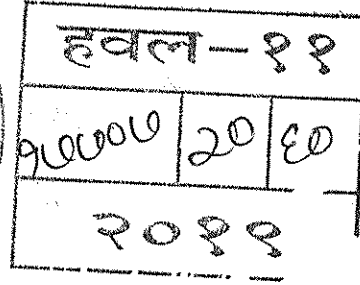 हवल-११
१७७०७ २० ६०
२०१९